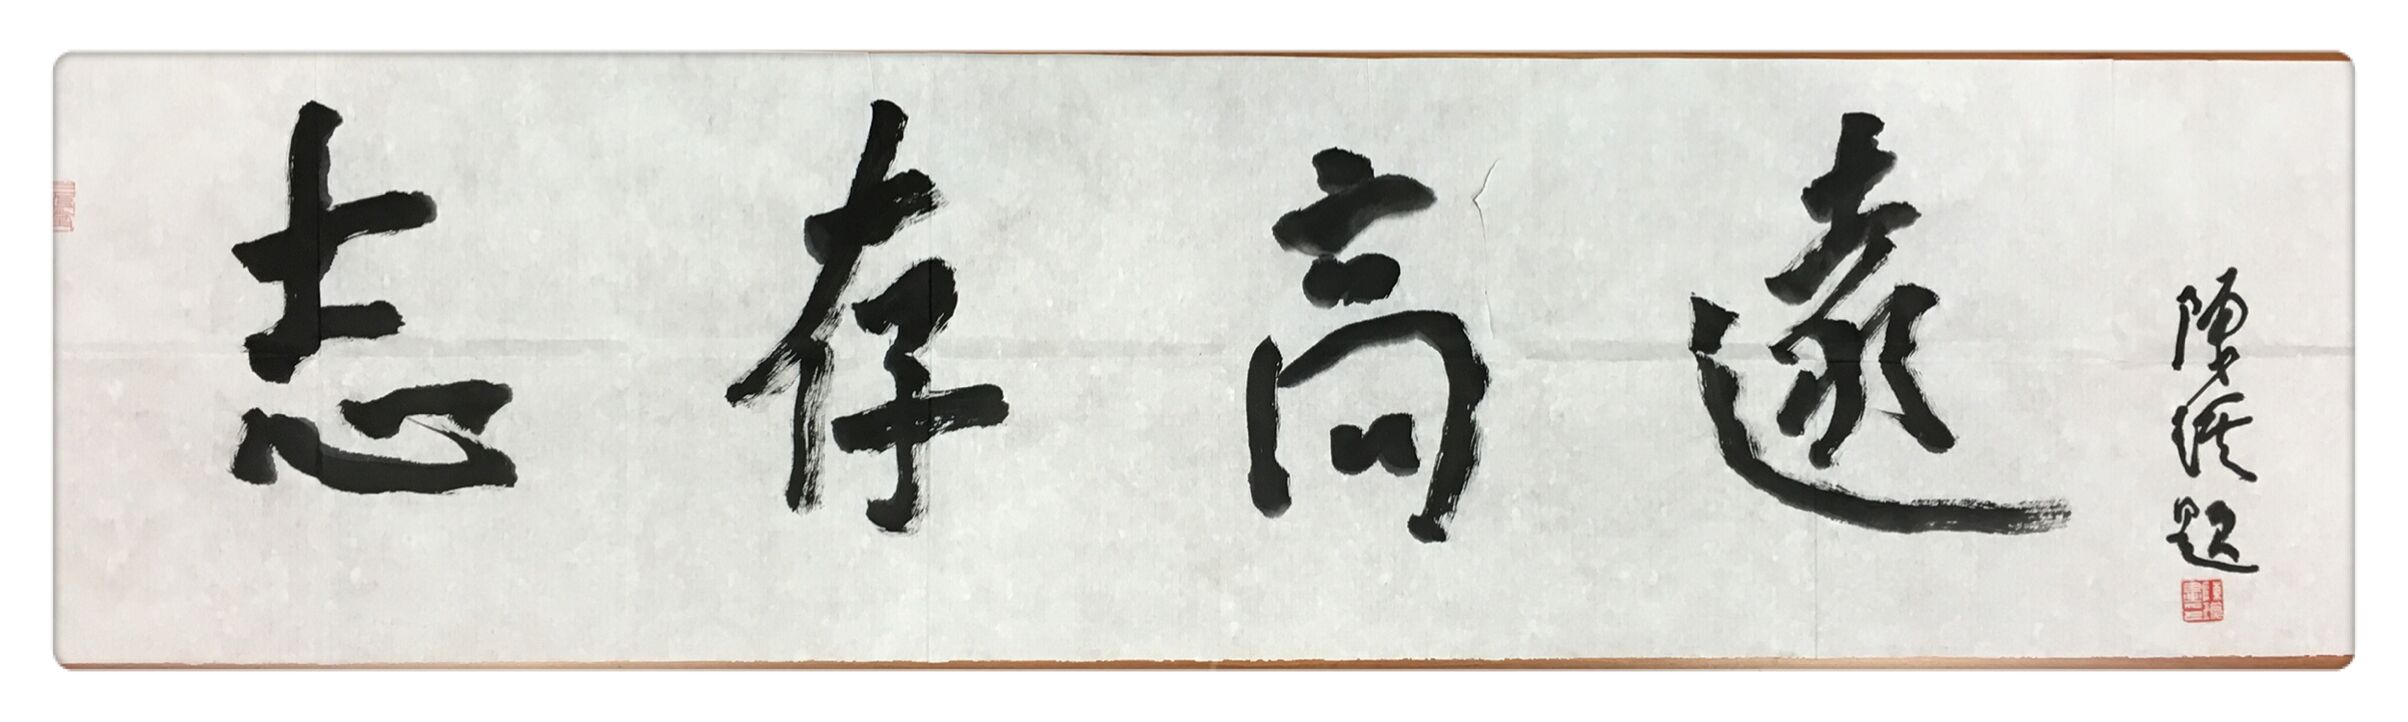 志存高遠
題